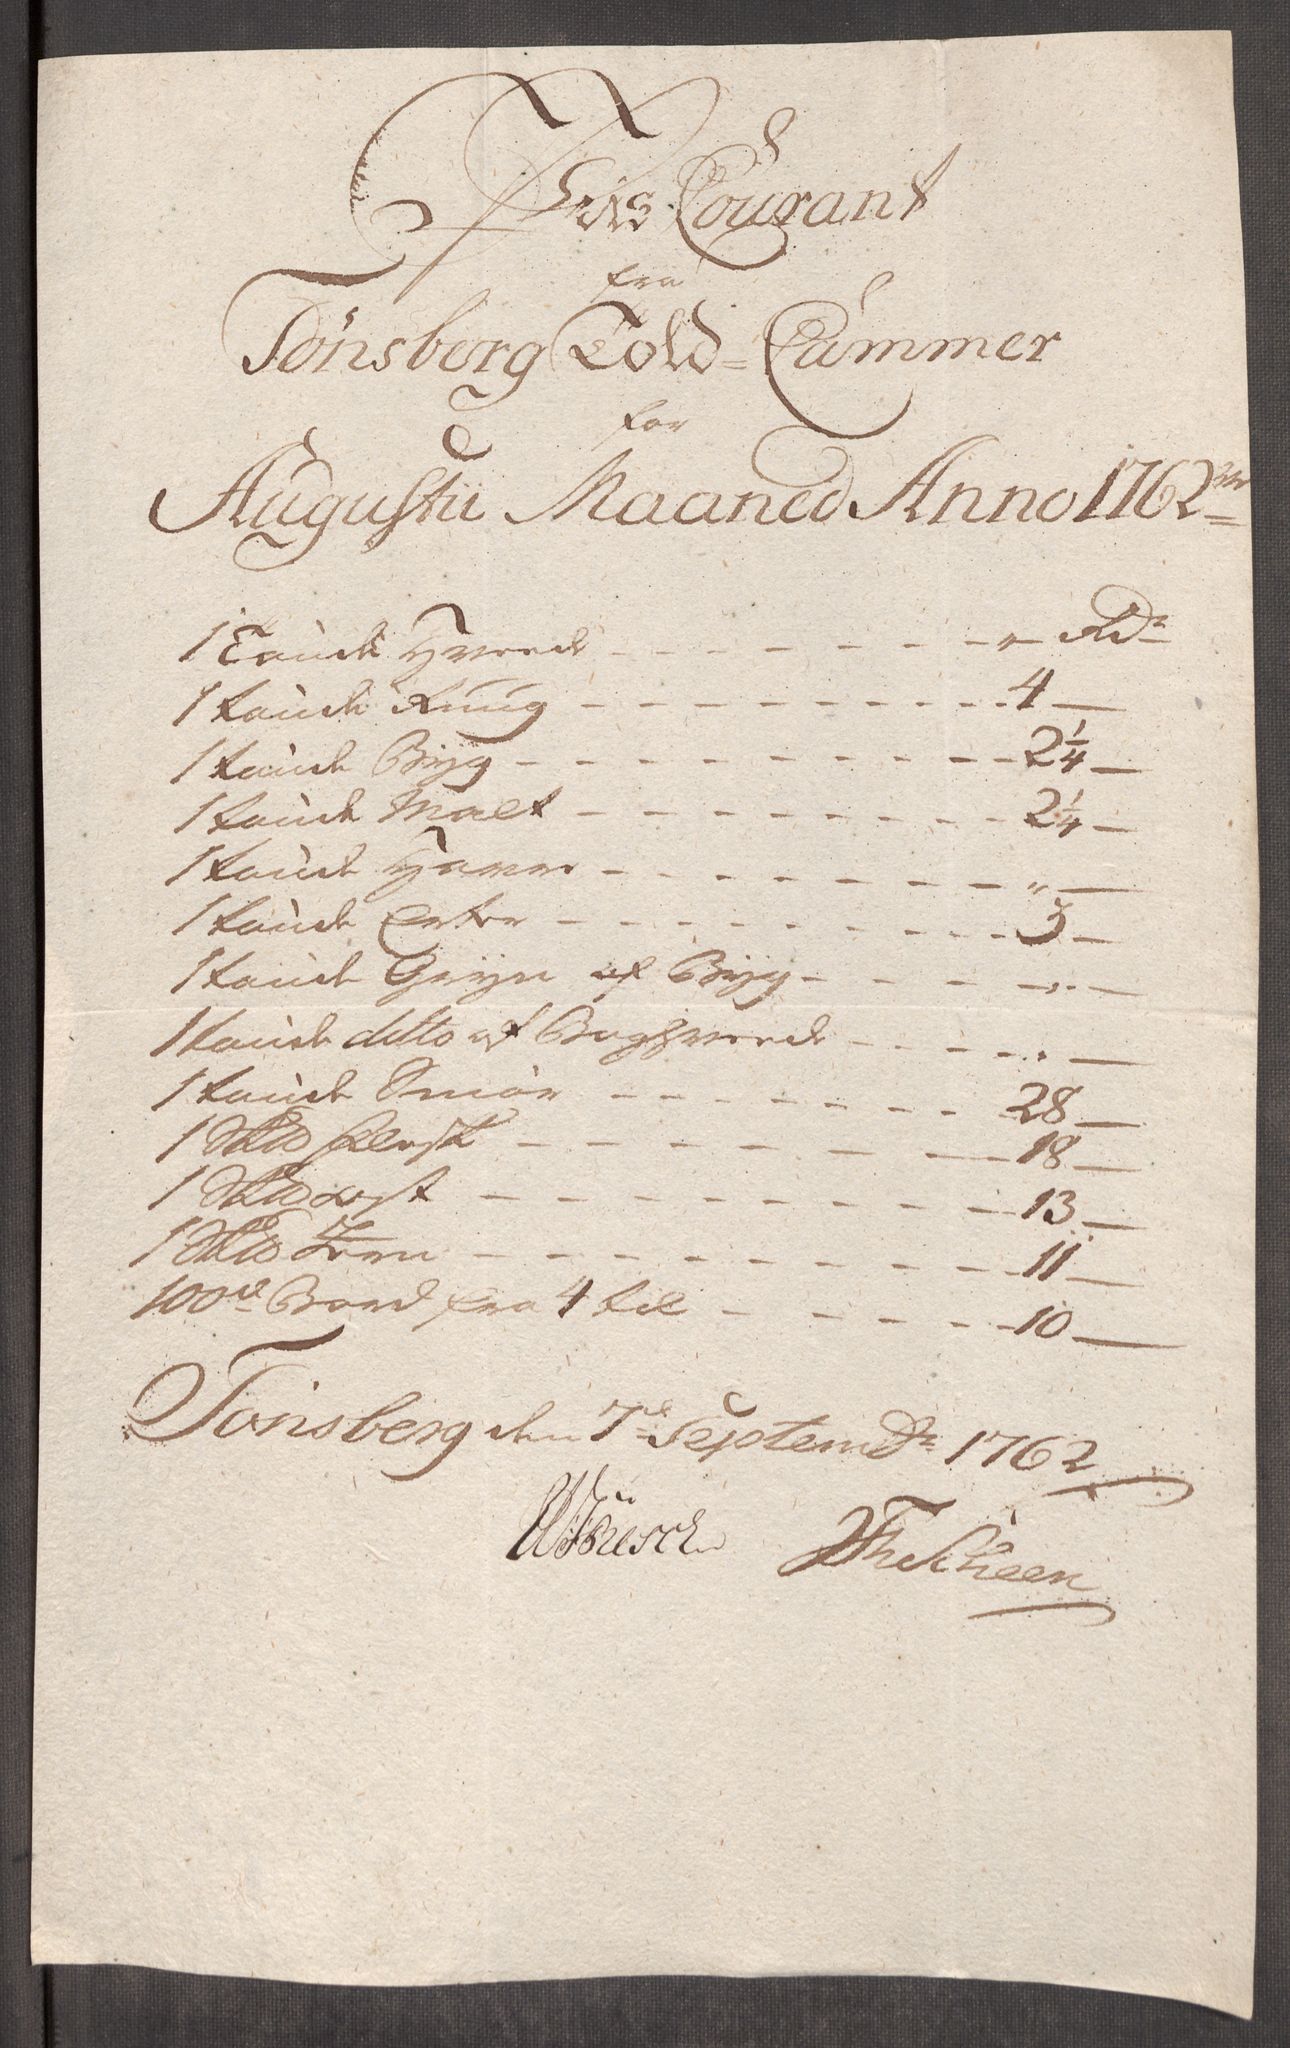 Priis Courant
fra
Tönsberg Told=Cammer
for
Augustii Maaned Anno 1762
1 Tønde Hvede - - - - - - - " Rdr
1 tønde Ruug - - - - - - - 4 —
1 tønde Byg - - - - - - - 2 1/4 —
1 tønde Malt - - - - - - - 2 1/4 —
1 tønde Havre - - - - - - - " —
1 tønde Erter - - - - - - - 3 —
1 tønde Gryn af Byg - - - - " —
1 tønde ditto af Boghvede - - - - " —
1 tønde Smør - - - - - - - 28 —
1 Skd flesk - - - - - - 18 —
1 Skd ost - - - - - - - 13 —
1 Skd Jern - - - - - - - 11 —
100de Bord fra 4 til - - - - - 10 —
Tönsberg den 7de Septembr 1762